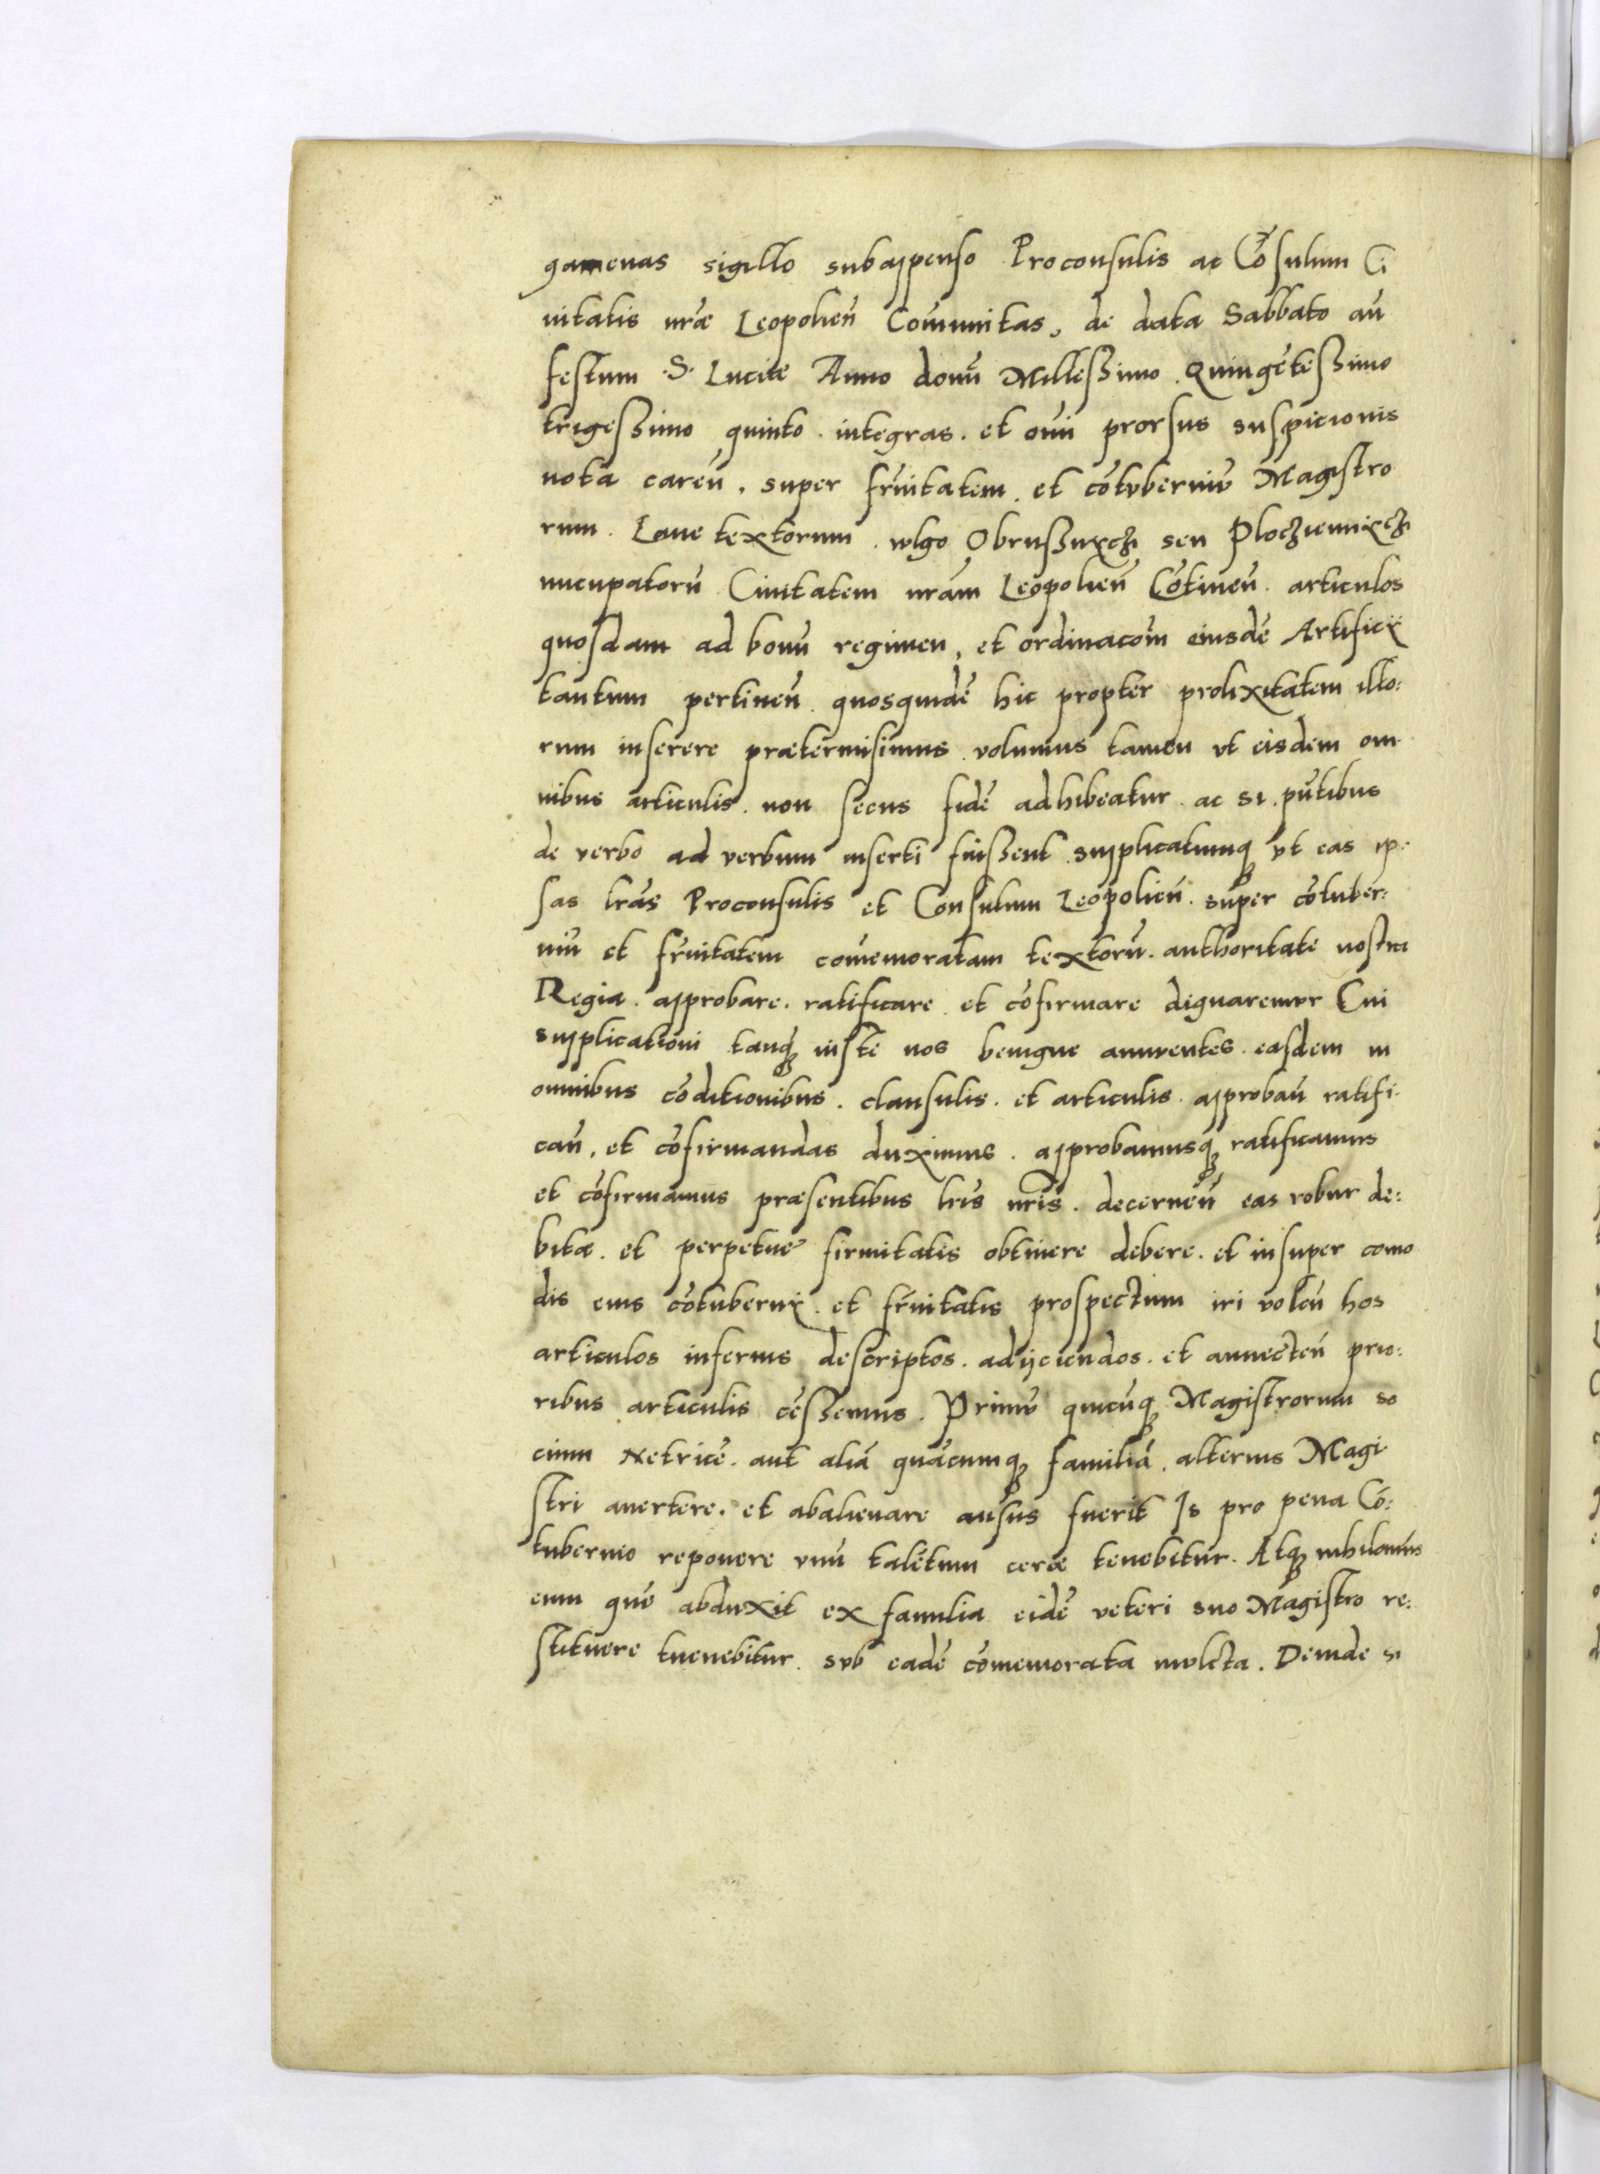 gamenas sigillo subappenso Proconsulis ac Cõsulum Ci
uitatis nr̃æ Leopolien̄ Com̄unitas, de data Sabbato an̄
festum .S. Lucię Anno domī Millesszimo Quingẽtesszimo
trigesszimo quinto. integras. et om̄i prorsus suspicionis
nota caren̄. super fr̃nitatem. et cõtuberniũ Magistro
rum. Lane textorum. wlgo Obrussnyxch seu Plocziennixch
nucupatorũ Ciuitatem nr̃am Leopolien̄ Cõtinen̄. articulos
quosdam ad bonũ regimen, et ordinacõm eiusdẽ Artificij
tantum pertinen̄. quosquidẽ hic propter prolixitatem illo:
rum inserere prætermisimus. volumus tamen vt eisdem om
nibus articulis. non secus fidẽ adhibeatur. ac si. pñtibus
de verbo ad verbum inserti fuisszent. supplicatumq̃ vt eas ip:
sas lr̃as Proconsulis et Consulum Leopolien̄. super cõtuber:
niũ et fr̃nitatem com̃emoratam textorũ. authoritate nostra
Regia. approbare. ratificare. et cõfirmare dignaremur Cui
supplicationi tanq̃ iuste nos benigne annuentes. easdem in
omnibus cõditionibus. clausulis. et articulis. approban̄ ratifi
can̄. et cõfirmandas duximus. approbamusq̃ ratificamus
et cõfirmamus præsentibus lr̃is nr̃is. decernen̄ eas robur de:
bitæ. et perpetuę firmitatis obtinere debere. et insuper como
dis eius cõtubernij. et fr̃nitatis prospectum iri volen̄ hos
articulos inferius descriptos. adijciendos. et annecten̄ prio:
ribus articulis cẽsszemus. Primũ quicũq̃ Magistrorum so
cium Netricẽ. aut aliã quãcumq̃ familiã. alterius Magi
stri auertere. et abalienare ausus fuerit Is pro pena Cõ:
tubernio reponere vnũ talẽtum ceræ tenebitur. Atq̃ nihilominus
eum quẽ abduxit ex familia eidẽ veteri suo Magistro re:
stituere tuenebitur. sub eadẽ cõmemorata mulcta. Deinde si